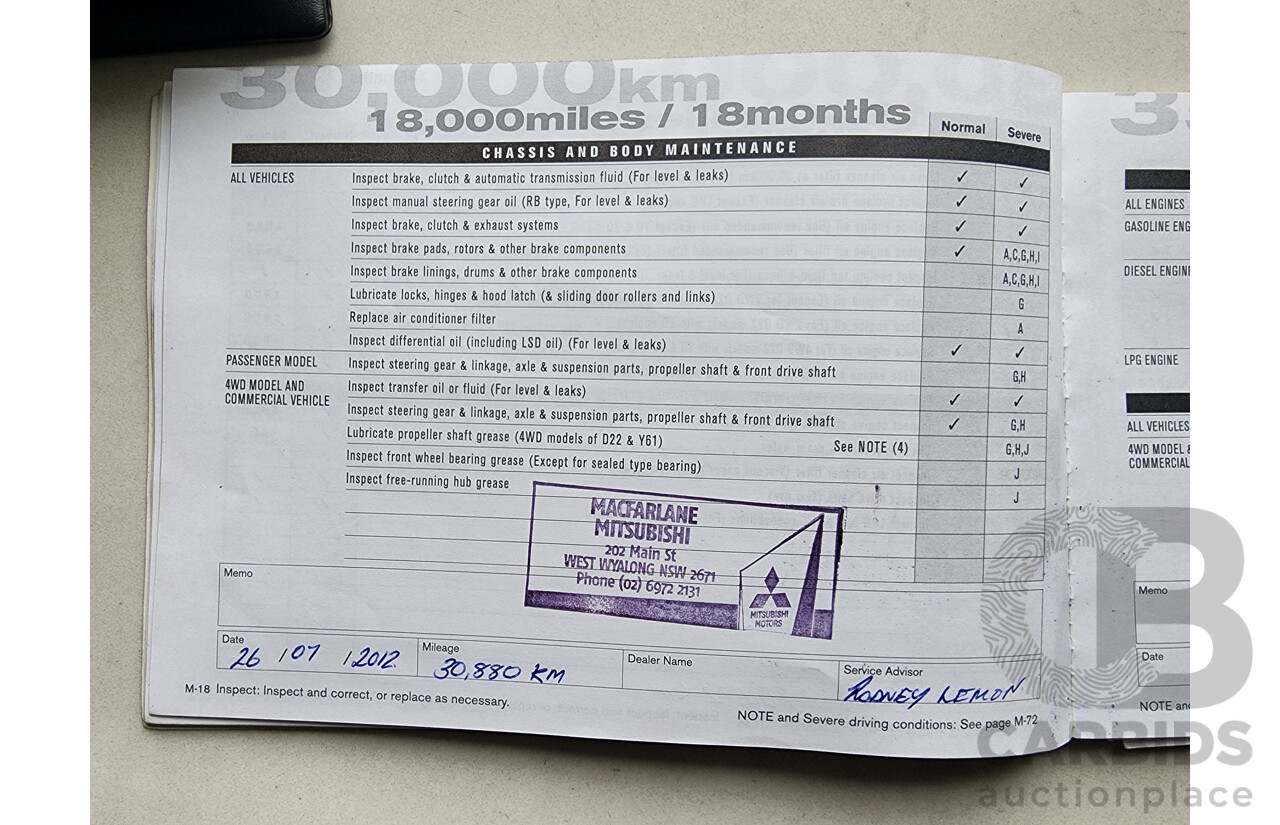 30,000km
18,000miles / 18months
Normal Severe
CHASSIS AND BODY MAINTENANCE
ALL VEHICLES Inspect brake, clutch & automatic transmission fluid (For level & leaks) ✓ ✓
Inspect manual steering gear oil (RB type, For level & leaks) ✓ ✓
Inspect brake, clutch & exhaust systems ✓ ✓
Inspect brake pads, rotors & other brake components ✓ A,C,G,H,I
Inspect brake linings, drums & other brake components A,C,G,H,I
Lubricate locks, hinges & hood latch (& sliding door rollers and links) G
Replace air conditioner filter A
Inspect differential oil (including LSD oil) (For level & leaks) ✓ ✓
PASSENGER MODEL Inspect steering gear & linkage, axle & suspension parts, propeller shaft & front drive shaft G,H
4WD MODEL AND Inspect transfer oil or fluid (For level & leaks) ✓ ✓
COMMERCIAL VEHICLE Inspect steering gear & linkage, axle & suspension parts, propeller shaft & front drive shaft ✓ G,H
Lubricate propeller shaft grease (4WD models of D22 & Y61) See NOTE (4) G,H,J
Inspect front wheel bearing grease (Except for sealed type bearing) J
Inspect free-running hub grease J
MACFARLANE
MITSUBISHI
202 Main St
WEST WYALONG NSW 2671
Phone (02) 6972 2131
MITSUBISHI
MOTORS
Memo
Date 26 / 07 / 2012
Mileage 30,880 KM
Dealer Name
Service Advisor
RODNEY LEMON
M-18 Inspect: Inspect and correct, or replace as necessary.
NOTE and Severe driving conditions: See page M-72
ALL ENGINES
GASOLINE ENG
DIESEL ENGIN
LPG ENGINE
ALL VEHICLES
4WD MODEL &
COMMERCIAL
Memo
Date
NOTE and
CARBIDS
auctionplace